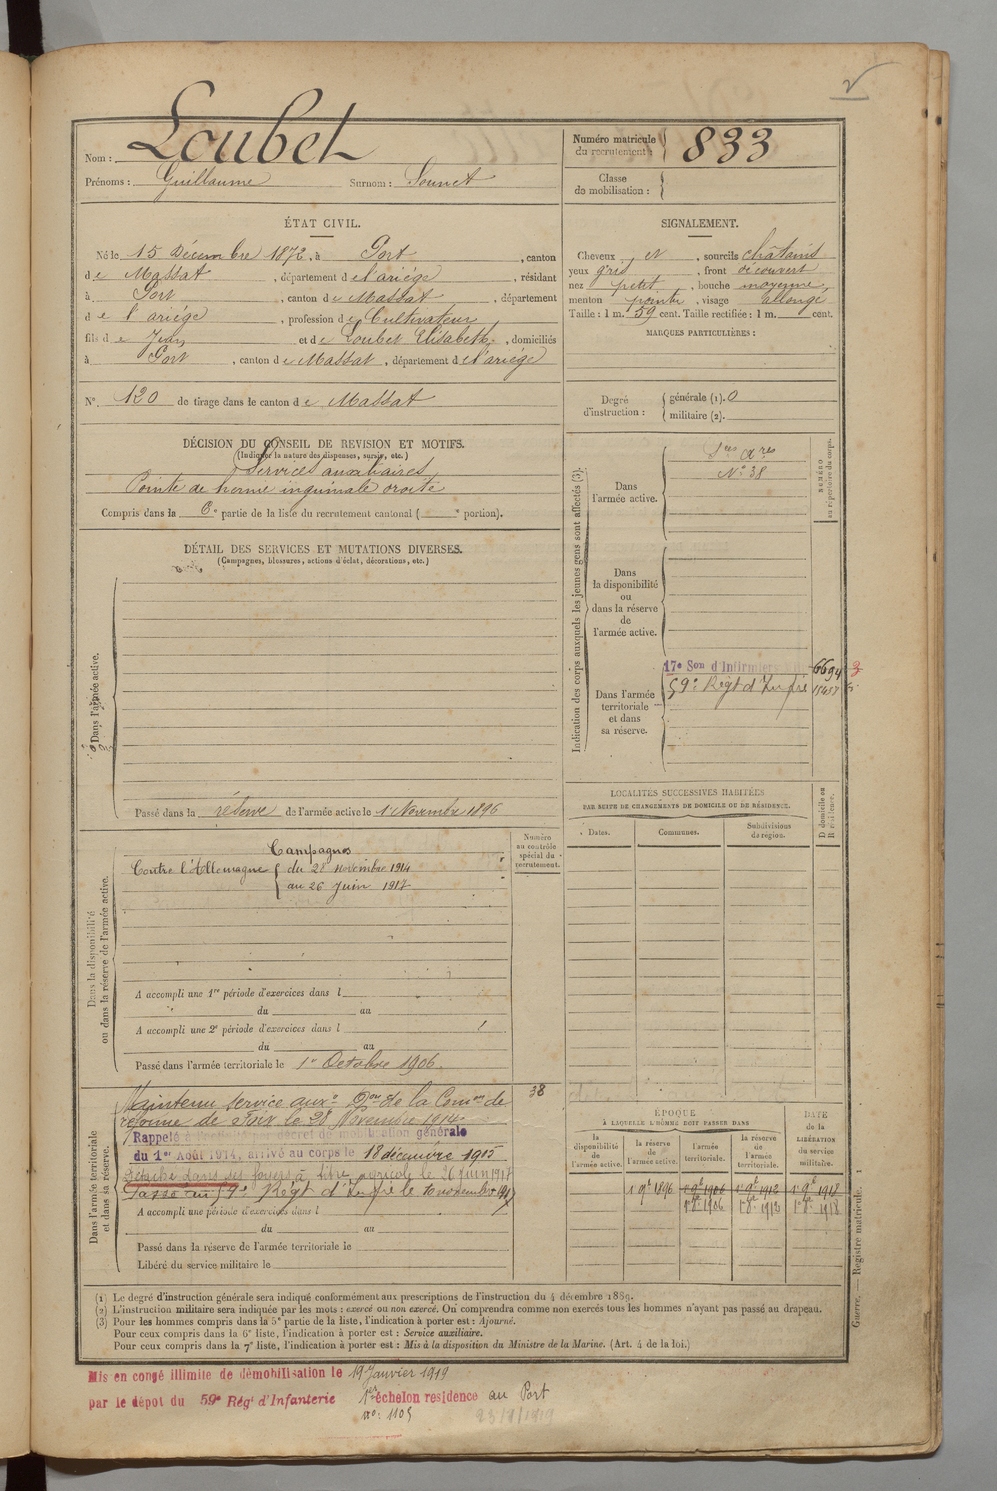 Nom : Loubet
Prénoms : Guillaume Surnom : Sounet
Numéro matricule du recrutement : 833
Classe de mobilisation :
ÉTAT CIVIL.
Né le 15 Décembre 1872, à Port, canton
de Massat, département de l'ariége, résidant
à Port, canton de Massat, département
de l'ariége, profession de Cultivateur
fils de Jean et de Loubet Elisabeth, domiciliés
à Port, canton de Massat, département de l'ariége
N° 120 de tirage dans le canton de Massat
SIGNALEMENT.
Cheveux et, sourcils châtains
yeux gris, front découvert
nez petit, bouche moyenne,
menton pointu, visage allongé
Taille : 1 m. 59 cent. Taille rectifiée : 1 m. cent.
MARQUES PARTICULIÈRES :
Degré d'instruction : générale (1). 0
militaire (2).
DÉCISION DU CONSEIL DE REVISION ET MOTIFS.
(Indiquer la nature des dispenses, sursis, etc.)
Services auxiliaires
Pointe de hernie inguinale droite
Compris dans la 6e partie de la liste du recrutement cantonal ( e portion).
DÉTAIL DES SERVICES ET MUTATIONS DIVERSES.
(Campagnes, blessures, actions d'éclat, décorations, etc.)
Dans l'armée active.
Passé dans la réserve de l'armée active le 1er Novembre 1896
Indication des corps auxquels les jeunes gens sont affectés (3).
NUMÉRO au répertoire du corps.
Dans l'armée active.
N° 38
Dans la disponibilité ou dans la réserve de l'armée active.
Dans l'armée territoriale et dans sa réserve.
17e Son d'Infirmiers 6694 3
59e Régt d'Infrie 15457
LOCALITÉS SUCCESSIVES HABITÉES
PAR SUITE DE CHANGEMENTS DE DOMICILE OU DE RÉSIDENCE.
Dates. Communes. Subdivisions de région.
D domicile ou R résidence.
Dans la disponibilité ou dans la réserve de l'armée active.
Numéro au contrôle spécial du recrutement.
Campagnes
Contre l'Allemagne { du 28 novembre 1914
au 26 juin 1917
A accompli une 1re période d'exercices dans l
du au
A accompli une 2e période d'exercices dans l
du au
Passé dans l'armée territoriale le 1er Octobre 1906.
Dans l'armée territoriale et dans sa réserve.
38
Maintenu service auxre Don de la Comon de
réforme de Foix le 28 Novembre 1914
Rappelé à l'activité par décret de mobilisation générale
du 1er Août 1914, arrivé au corps le 18 décembre 1915
Détaché dans ses foyers à titre agricole le 26 juin 1917
Passé au 59e Régt d'Infrie le 10 novembre 1917
A accompli une période d'exercices dans l
du au
Passé dans la réserve de l'armée territoriale le
Libéré du service militaire le
ÉPOQUE
À LAQUELLE L'HOMME DOIT PASSER DANS
DATE de la LIBÉRATION du service militaire.
la disponibilité de l'armée active. la réserve de l'armée active. l'armée territoriale. la réserve de l'armée territoriale.
1er 9bre 1896 1er 9bre 1906 1er 9bre 1912 1er 9bre 1918
1er 8bre 1906 1er 8bre 1912 1er 8bre 1918
(1) Le degré d'instruction générale sera indiqué conformément aux prescriptions de l'instruction du 4 décembre 1889.
(2) L'instruction militaire sera indiquée par les mots : exercé ou non exercé. On comprendra comme non exercés tous les hommes n'ayant pas passé au drapeau.
(3) Pour les hommes compris dans la 5e partie de la liste, l'indication à porter est : Ajourné.
Pour ceux compris dans la 6e liste, l'indication à porter est : Service auxiliaire.
Pour ceux compris dans la 7e liste, l'indication à porter est : Mis à la disposition du Ministre de la Marine. (Art. 4 de la loi.)
Guerre. — Registre matricule. 1
Mis en congé illimité de démobilisation le 19 Janvier 1919
par le dépôt du 59e Régt d'Infanterie 1er échelon résidence au Port
no: 1105
23/1/1919